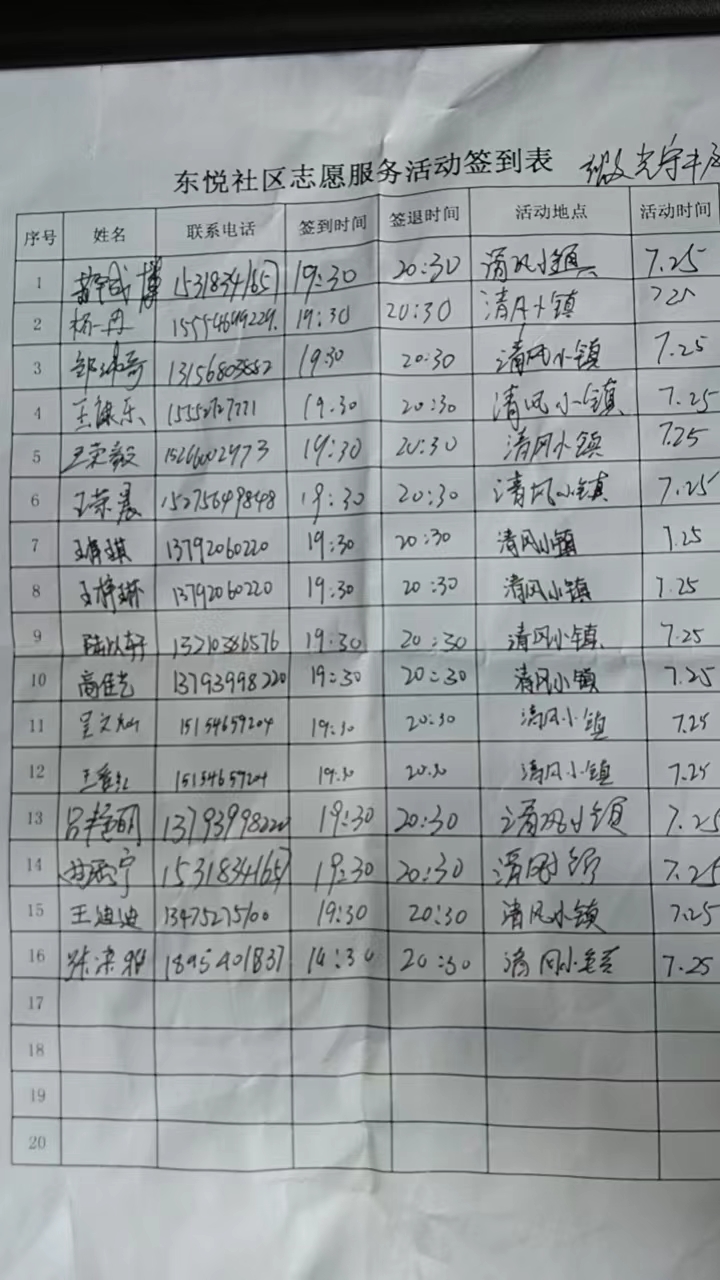 东悦社区志愿服务活动签到表
序号 姓名 联系电话 签到时间 签退时间 活动地点 活动时间
1 15318341657 19:30 20:30 清风小镇 7.25
2 杨丹 19:30 20:30 清风小镇 7.25
3 19:30 20:30 清风小镇 7.25
4 王康乐 19:30 20:30 清风小镇 7.25
5 王荣毅 15266002973 19:30 20:30 清风小镇 7.25
6 王荣晨 15275649848 19:30 20:30 清风小镇 7.25
7 13792060220 19:30 20:30 清风小镇 7.25
8 13792060220 19:30 20:30 清风小镇 7.25
9 陆以轩 13210386576 19:30 20:30 清风小镇 7.25
10 高佳艺 13793998220 19:30 20:30 清风小镇 7.25
11 15154659204 19:30 20:30 清风小镇 7.25
12 15154659204 19:30 20:30 清风小镇 7.25
13 吕艳丽 13793998220 19:30 20:30 清风小镇 7.25
14 15318341657 19:30 20:30 清风小镇 7.25
15 王迪迪 13475275100 19:30 20:30 清风小镇 7.25
16 1895401837 20:30 清风小镇 7.25
17
18
19
20